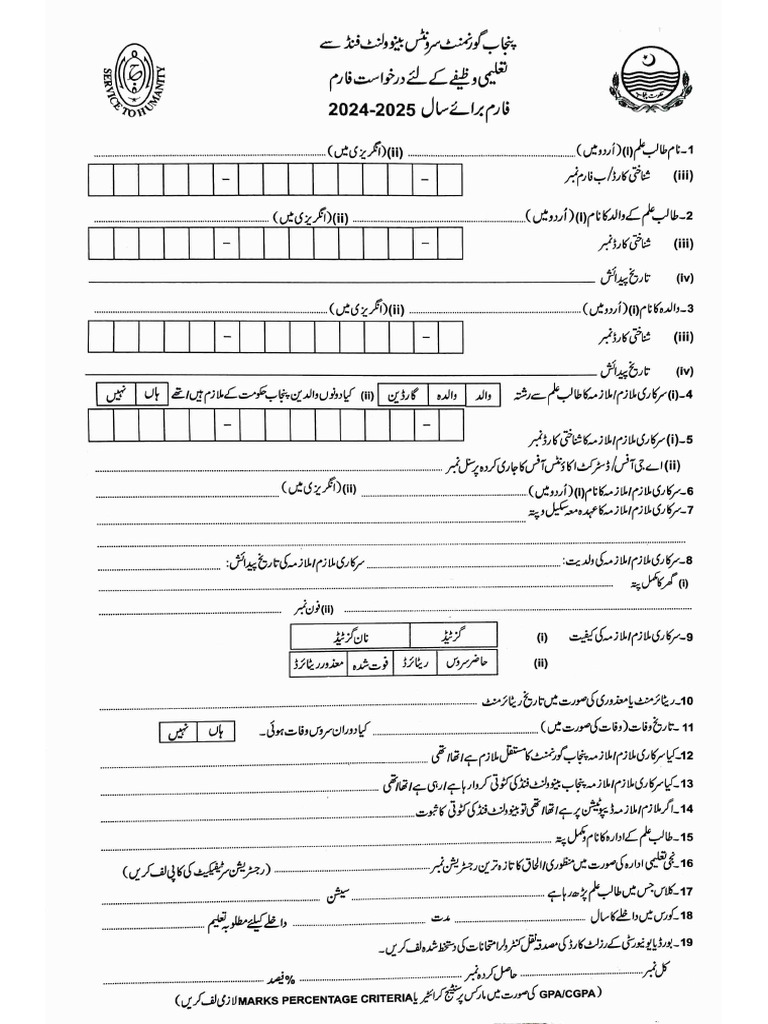 پنجاب گورنمنٹ سرونٹس بینوولنٹ فنڈ سے
تعلیمی وظیفے کے لئے درخواست فارم
فارم برائے سال 2024-2025
SERVICE TO HUMANITY
1۔ نام طالب علم (i) (اُردو میں) (ii) (انگریزی میں)
(iii) شناختی کارڈ/ب فارم نمبر
2۔ طالب علم کے والد کا نام (i) (اُردو میں) (ii) (انگریزی میں)
(iii) شناختی کارڈ نمبر
(iv) تاریخ پیدائش
3۔ والدہ کا نام (i) (اُردو میں) (ii) (انگریزی میں)
(iii) شناختی کارڈ نمبر
(iv) تاریخ پیدائش
4۔ (i) سرکاری ملازم/ملازمہ کا طالب علم سے رشتہ والد والدہ گارڈین (ii) کیا دونوں والدین پنجاب حکومت کے ملازم ہیں/تھے ہاں نہیں
5۔ (i) سرکاری ملازم/ملازمہ کا شناختی کارڈ نمبر
(ii) اے جی آفس/ڈسٹرکٹ اکاؤنٹس آفس کا جاری کردہ پرسنل نمبر
6۔ سرکاری ملازم/ملازمہ کا نام (i) (اُردو میں) (ii) (انگریزی میں)
7۔ سرکاری ملازم/ملازمہ کا عہدہ معہ سکیل و پتہ
8۔ سرکاری ملازم/ملازمہ کی ولدیت: سرکاری ملازم/ملازمہ کی تاریخ پیدائش:
(i) گھر کا مکمل پتہ
(ii) فون نمبر
9۔ سرکاری ملازم/ملازمہ کی کیفیت (i) گزٹیڈ نان گزٹیڈ
(ii) حاضر سروس ریٹائرڈ فوت شدہ معذور ریٹائرڈ
10۔ ریٹائرمنٹ یا معذوری کی صورت میں تاریخ ریٹائرمنٹ
11۔ تاریخ وفات (وفات کی صورت میں) کیا دوران سروس وفات ہوئی۔ ہاں نہیں
12۔ کیا سرکاری ملازم/ملازمہ پنجاب گورنمنٹ کا مستقل ملازم ہے/تھا/تھی
13۔ کیا سرکاری ملازم/ملازمہ پنجاب بینوولنٹ فنڈ کی کٹوتی کروا رہا ہے/رہی ہے/تھا/تھی
14۔ اگر ملازم/ملازمہ ڈیپوٹیشن پر ہے/تھا/تھی تو بینوولنٹ فنڈ کی کٹوتی کا ثبوت
15۔ طالب علم کے ادارہ کا نام و مکمل پتہ
16۔ نجی تعلیمی ادارہ کی صورت میں منظوری/الحاق کا تازہ ترین رجسٹریشن نمبر (رجسٹریشن سرٹیفیکیٹ کی کاپی لف کریں)
17۔ کلاس جس میں طالب علم پڑھ رہا ہے سیشن
18۔ کورس میں داخلے کا سال مدت داخلے کیلئے مطلوبہ تعلیم
19۔ بورڈ یا یونیورسٹی کے رزلٹ کارڈ کی مصدقہ نقل کنٹرولر امتحانات کی دستخط شدہ لف کریں۔
کل نمبر حاصل کردہ نمبر % فیصد
(GPA/CGPA کی صورت میں مارکس پرسنٹیج کرائٹیریا MARKS PERCENTAGE CRITERIA لازمی لف کریں)